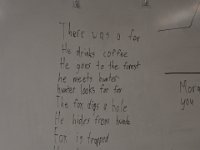 There was a fox
He drinks coffee
He goes to the forest
he meets hunter
hunter looks for fox
The fox digs a hole
He hides from hunter
Fox is trapped
you